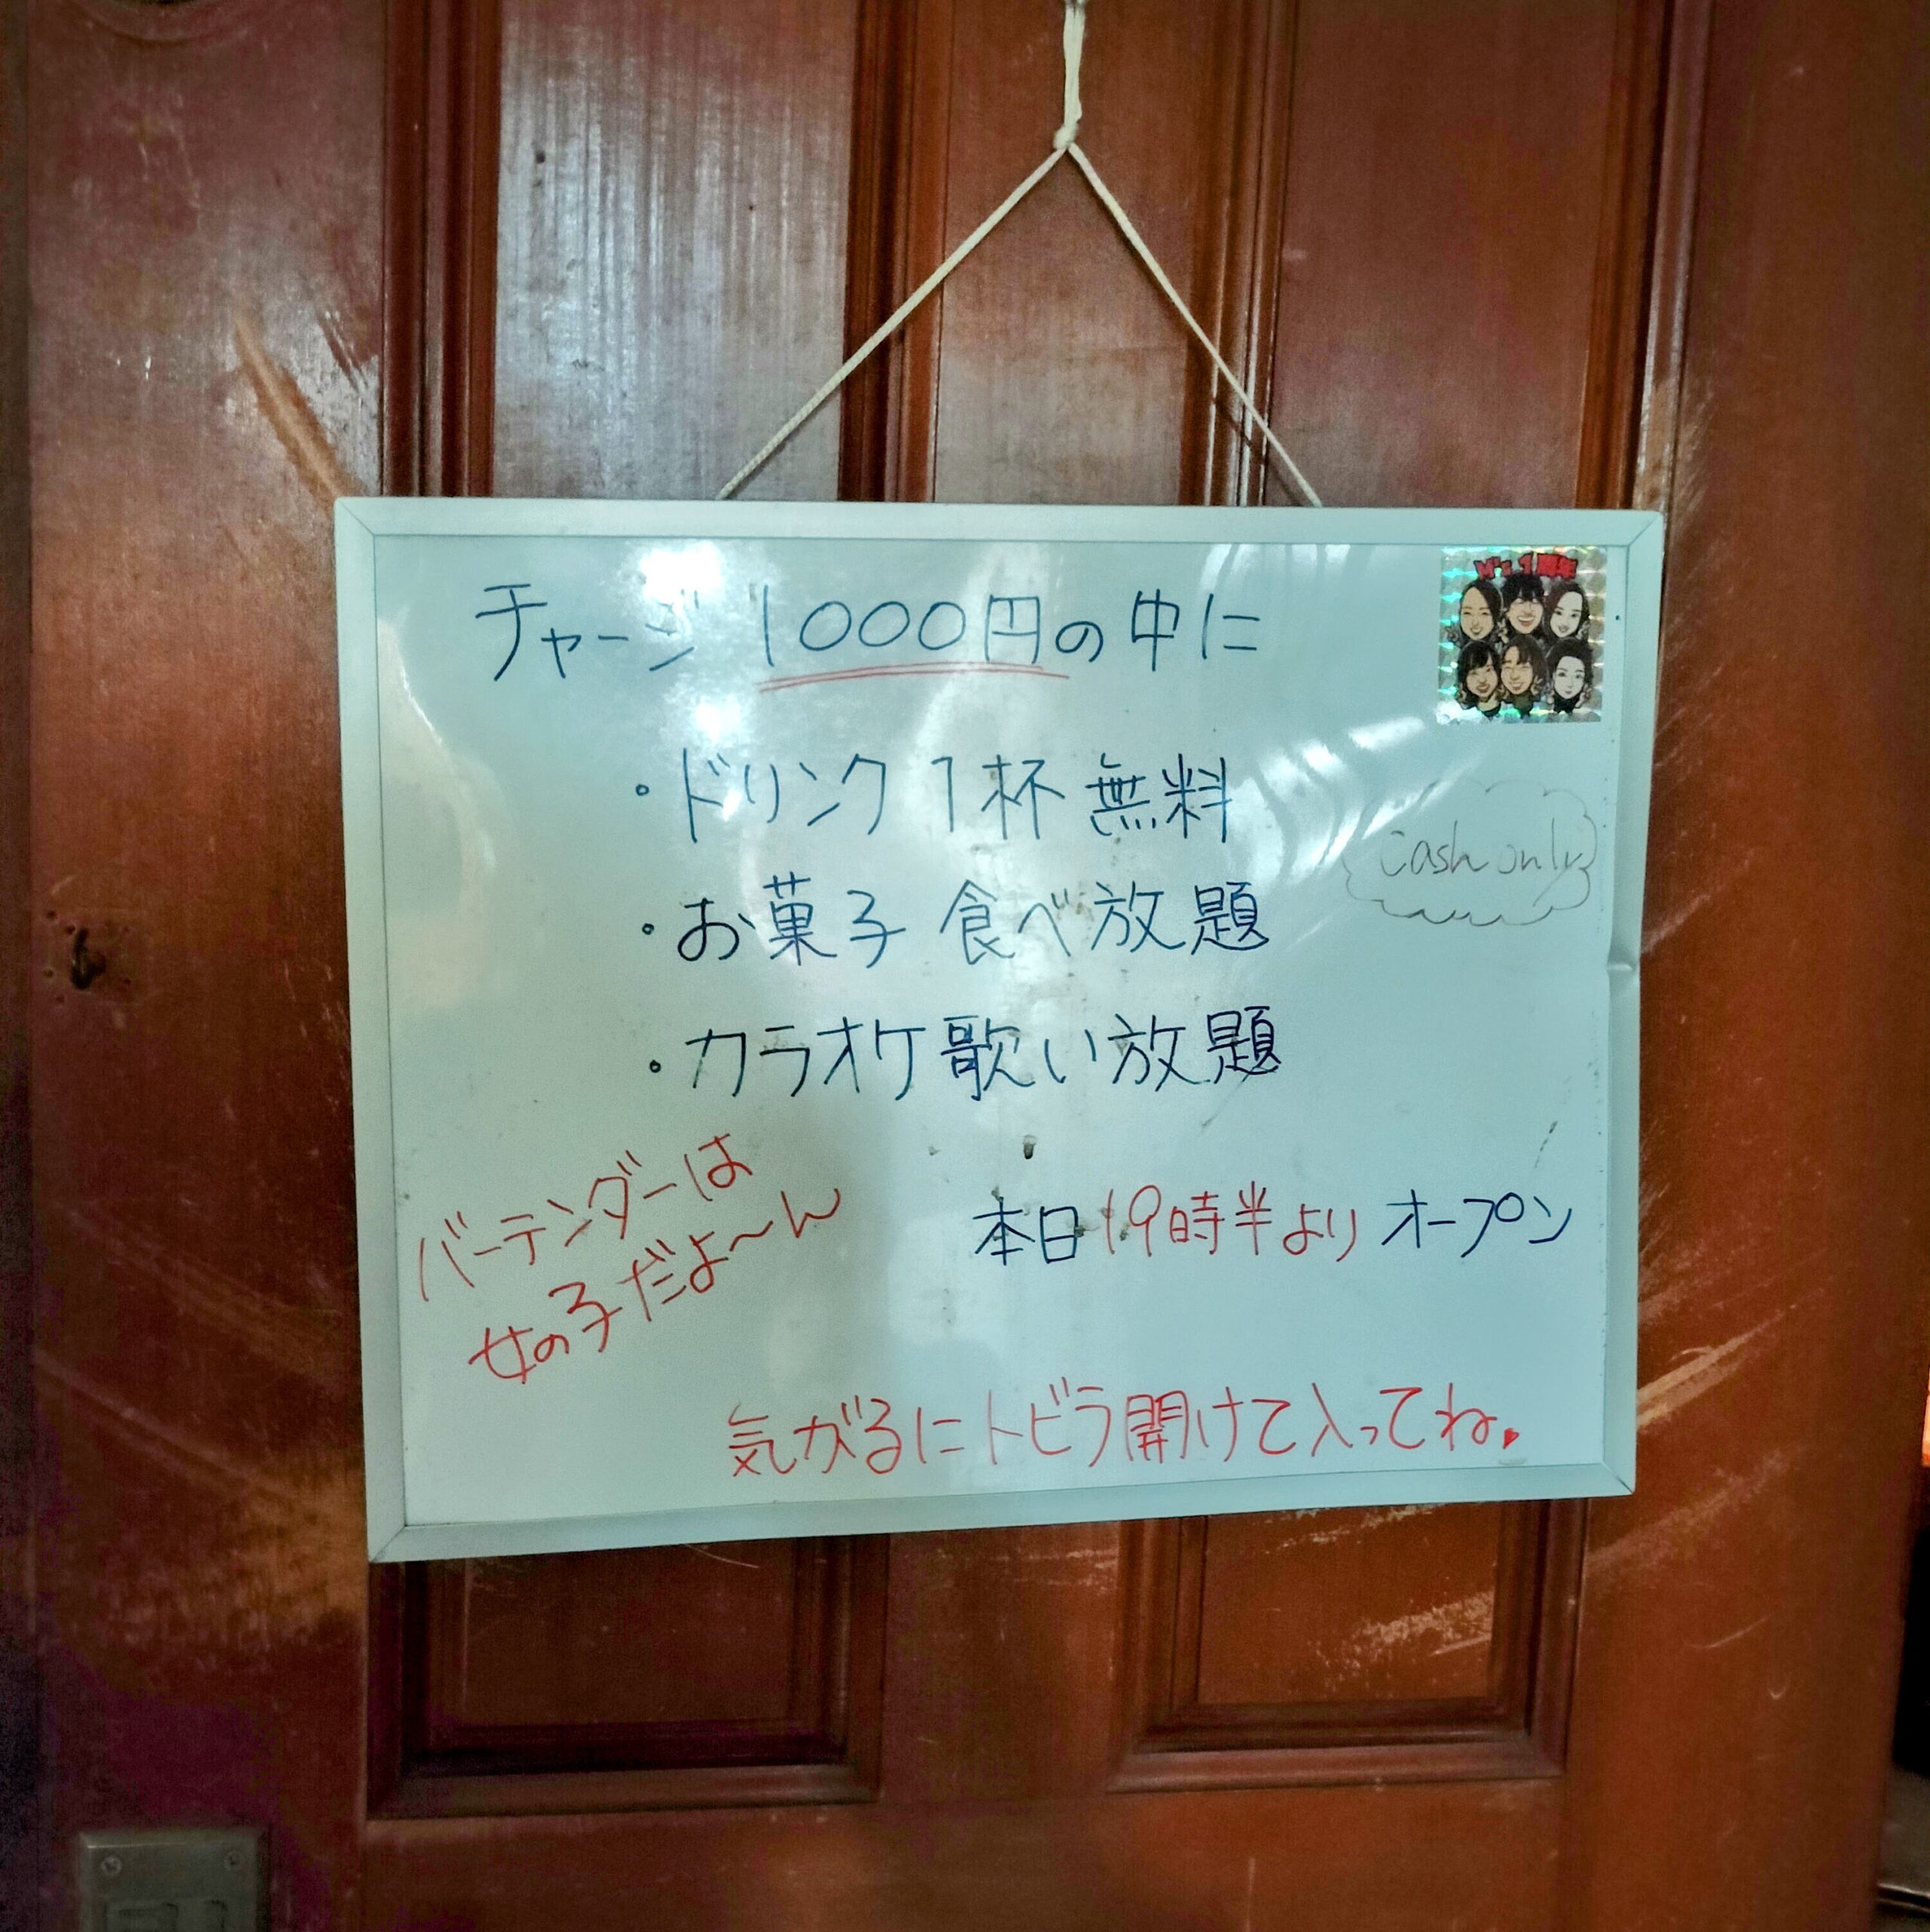 チャージ 1000円の中に
1周年
・ドリンク 1杯 無料
cash only
・お菓子 食べ放題
・カラオケ歌い放題
バーテンダーは
女の子だよ〜ん
本日19時半より オープン
気がるにトビラ開けて入ってね♥